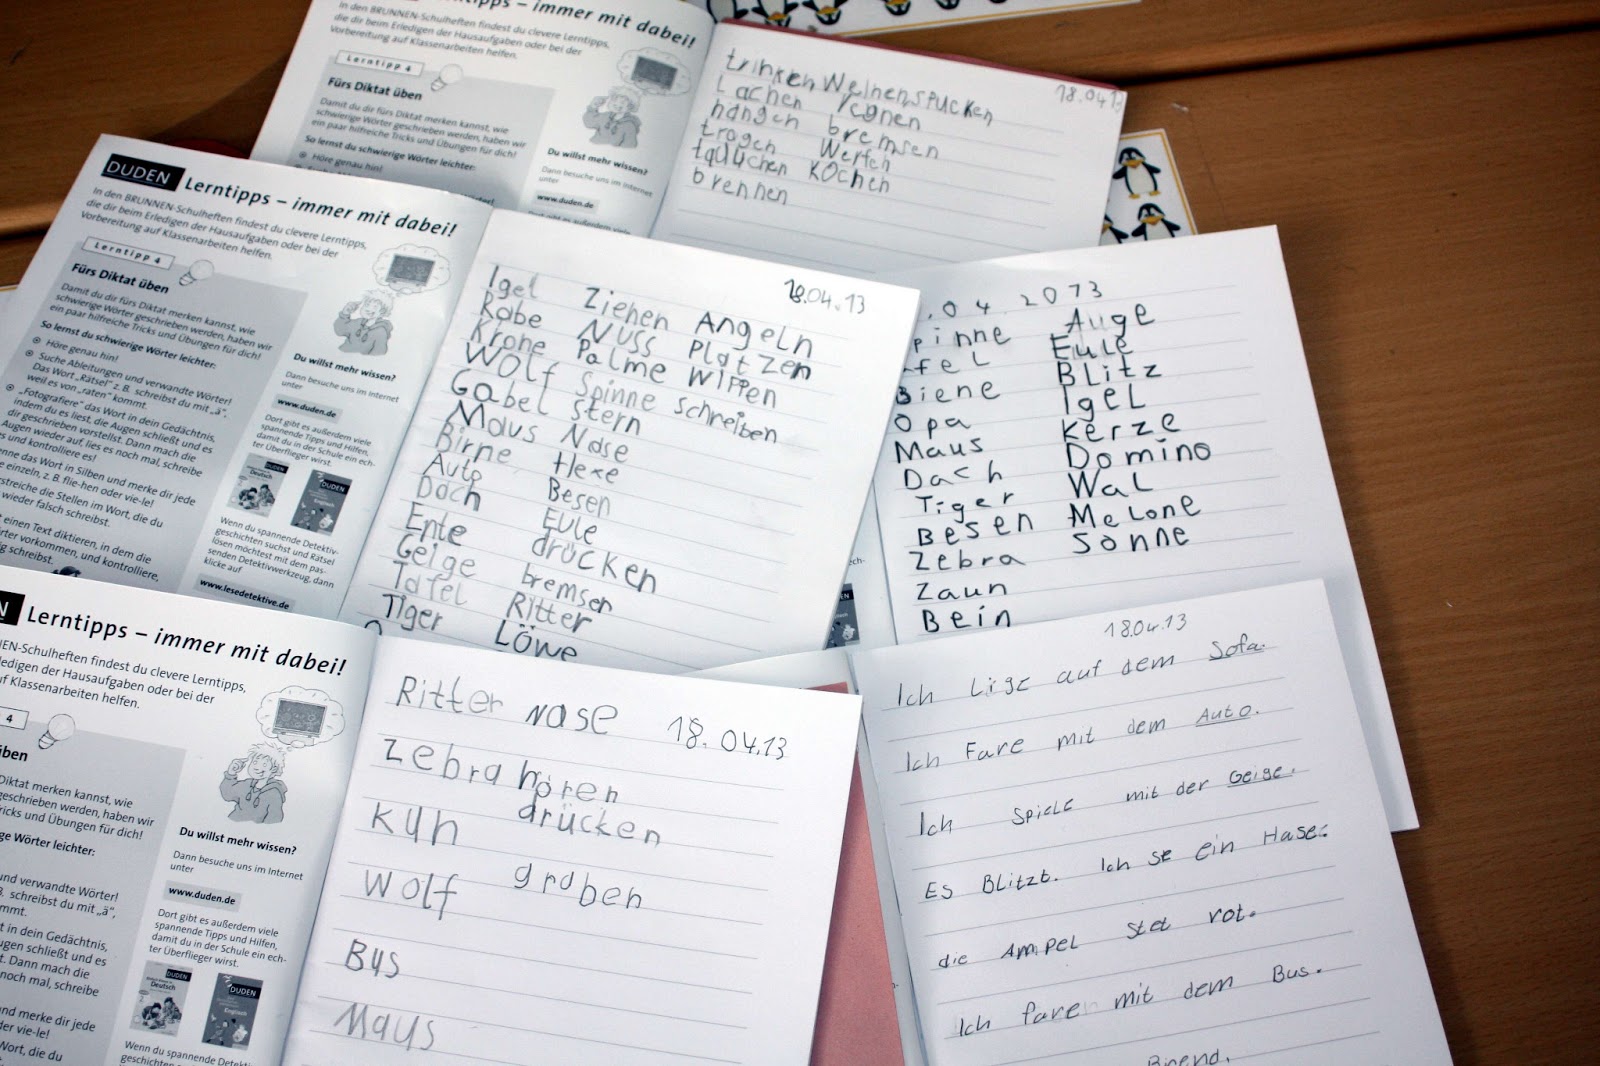 pps – immer mit dabei!
In den BRUNNEN-Schulheften findest du clevere Lerntipps,
die dir beim Erledigen der Hausaufgaben oder bei der
Vorbereitung auf Klassenarbeiten helfen.
Lerntipp 4
Fürs Diktat üben
Damit du dir fürs Diktat merken kannst, wie
schwierige Wörter geschrieben werden, haben wir
ein paar hilfreiche Tricks und Übungen für dich!
So lernst du schwierige Wörter leichter:
Höre genau hin!
Du willst mehr wissen?
Dann besuche uns im Internet
unter
www.duden.de
Dort gibt es außerdem viele
trinken Weinen spucken
18.04.13
Lachen regnen
hängen bremsen
tragen Werfen
tauchen KOchen
brennen
DUDEN
Lerntipps – immer mit dabei!
In den BRUNNEN-Schulheften findest du clevere Lerntipps,
die dir beim Erledigen der Hausaufgaben oder bei der
Vorbereitung auf Klassenarbeiten helfen.
Lerntipp 4
Fürs Diktat üben
Damit du dir fürs Diktat merken kannst, wie
schwierige Wörter geschrieben werden, haben wir
ein paar hilfreiche Tricks und Übungen für dich!
So lernst du schwierige Wörter leichter:
Höre genau hin!
Suche Ableitungen und verwandte Wörter!
Das Wort „Rätsel" z. B. schreibst du mit „ä",
weil es von „raten" kommt.
„Fotografiere" das Wort in dein Gedächtnis,
indem du es liest, die Augen schließt und es
dir geschrieben vorstellst. Dann mach die
Augen wieder auf, lies es noch mal, schreibe
s und kontrolliere es!
nne das Wort in Silben und merke dir jede
e einzeln, z. B. flie-hen oder vie-le!
streiche die Stellen im Wort, die du
wieder falsch schreibst.
t einen Text diktieren, in dem die
örter vorkommen, und kontrolliere,
g schreibst.
Du willst mehr wissen?
Dann besuche uns im Internet
unter
www.duden.de
Dort gibt es außerdem viele
spannende Tipps und Hilfen,
damit du in der Schule ein ech-
ter Überflieger wirst.
Wenn du spannende Detektiv-
geschichten suchst und Rätsel
lösen möchtest mit dem pas-
senden Detektivwerkzeug, dann
klicke auf
www.lesedetektive.de
18.04.13
Igel Ziehen Angeln
Rabe NUSS PlatZen
Krone Palme WIPPen
WOlf Spinne schreiben
Gabel stern
Maus Nase
Birne Hexe
Auto Besen
Dach EULe
Ente drücken
Geige bremsen
Tafel Ritter
Tiger Löwe
.04.2013
pinne Auge
fel Eule
Biene BLitz
Opa IgeL
Maus Kerze
Dach Domino
Tiger WaL
Besen MeLone
Zebra Sonne
Zaun
Bein
N
Lerntipps – immer mit dabei!
NEN-Schulheften findest du clevere Lerntipps,
ledigen der Hausaufgaben oder bei der
uf Klassenarbeiten helfen.
4
üben
Diktat merken kannst, wie
geschrieben werden, haben wir
ricks und Übungen für dich!
ge Wörter leichter:
und verwandte Wörter!
B. schreibst du mit „ä",
mmt.
t in dein Gedächtnis,
ugen schließt und es
t. Dann mach die
noch mal, schreibe
und merke dir jede
der vie-le!
Wort, die du
Du willst mehr wissen?
Dann besuche uns im Internet
unter
www.duden.de
Dort gibt es außerdem viele
spannende Tipps und Hilfen,
damit du in der Schule ein ech-
ter Überflieger wirst.
Wenn du spannende Detektiv-
geschichten suchst und Rätsel
Ritter Nase 18.04.13
Zebra hören
Kun drücken
Wolf graben
Bus
Maus
18.04.13
Ich Lige auf dem Sofa.
Ich Fare mit dem Auto.
Ich SpieLe mit der Geige.
Es BLitzt. Ich se ein Hase.
die AmpeL stet rot.
Ich fare mit dem Bus.